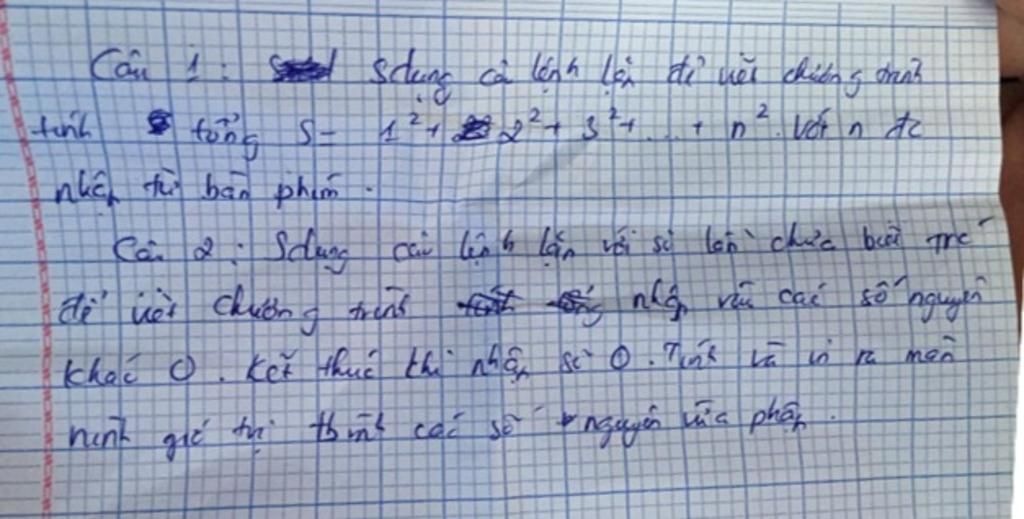 Câu 1: Sdụng câu lệnh lặp để viết chương trình
tính tổng S = 1² + 2² + 3² + ... + n² với n đc
nhập từ bàn phím.
Câu 2: Sdụng câu lệnh lặp với số lần chưa biết trc
để viết chương trình nhập vào các số nguyên
khác 0. Kết thúc khi nhập số 0. Tính và in ra màn
hình giá trị tbình các số nguyên vừa nhập.